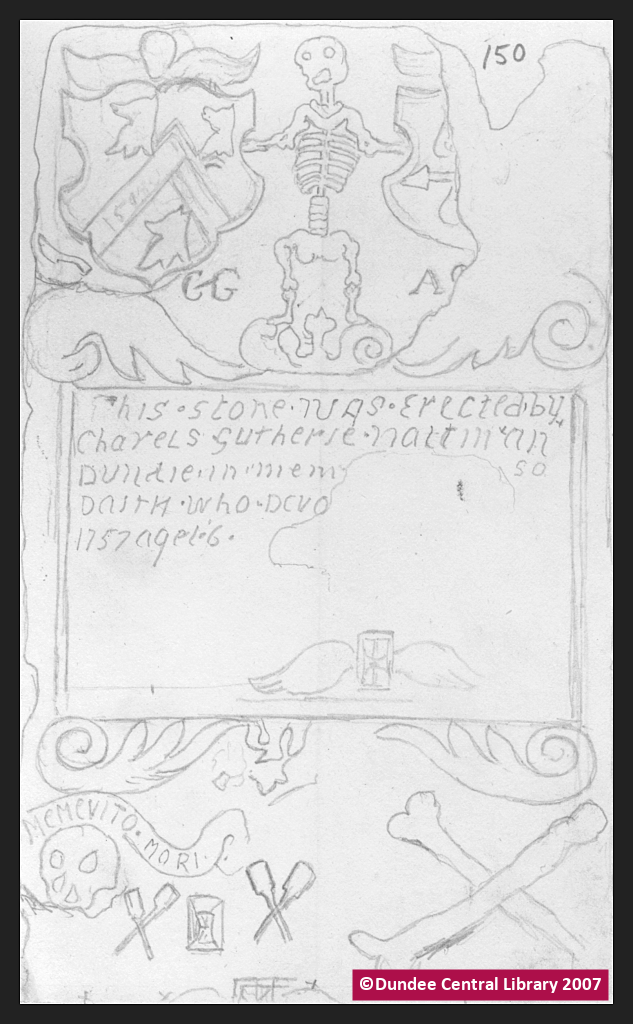 150
CG A
This·stone·was·Erected·by
Charels·Gutherie·
Dundie·in·mem
so
Daith·who·
1757 aget·6·
MEMEVITO·MORI·
©Dundee Central Library 2007